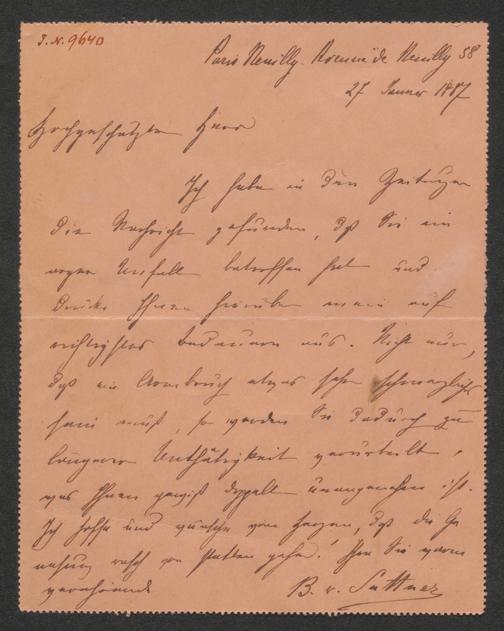 J.N. 9640
Paris Neuilly. Avenue de Neuilly 58
27 Januar 1887
Hochgeschätzter Herr
Ich habe in den Zeitungen
die Nachricht gefunden, dß Sie ein
arger Unfall betroffen hat und
drücke Ihnen hierüber mein auf
richtigstes Bedauern aus. Nicht nur,
dß ein Armbruch etwas sehr schmerzliches
sein muß, so werden Sie dadurch zu
längerer Unthätigkeit verurteilt,
was Ihnen gewiß doppelt unangenehm ist.
Ich hoffe und wünsche von Herzen, dß die Ge
nesung rasch von statten gehe! Ihre Sie warm
verehrende B. v. Suttner